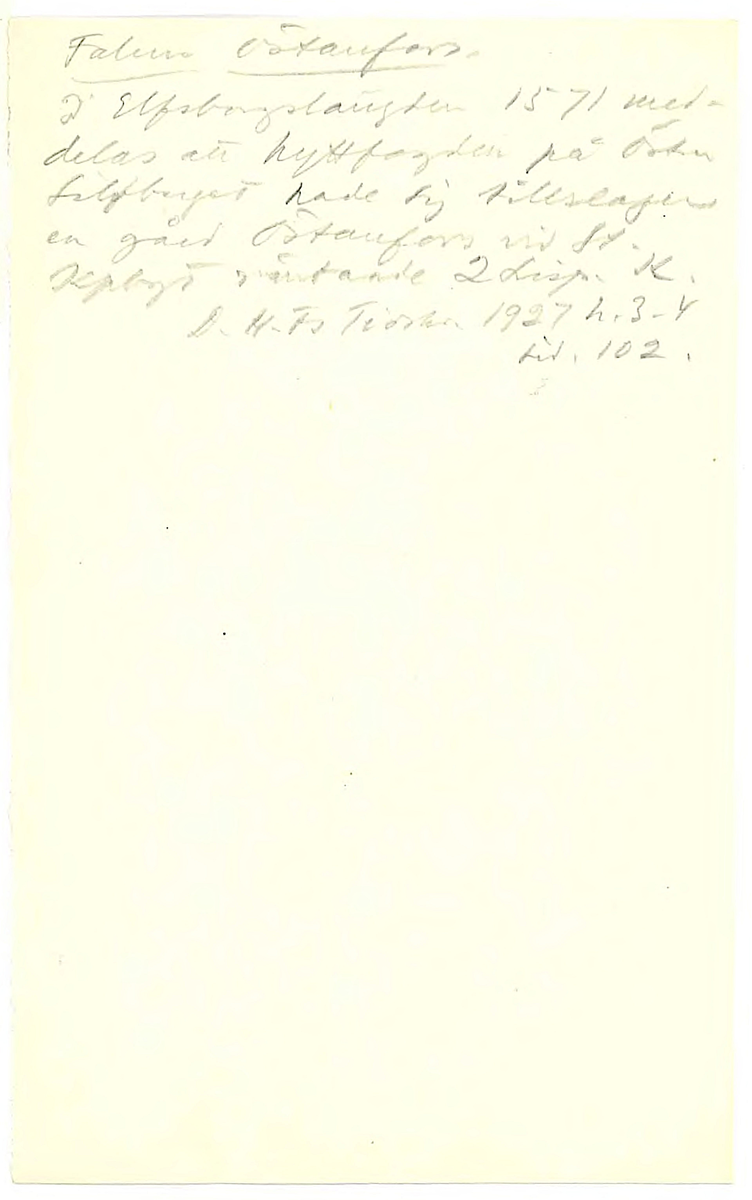 Falun Östanfors.
I Elfsborgslängden 1571 med-
delas att hyttfogden på Östra
Silfberget hade sig tillslagen
en gård Östanfors vid St.
Kpbgt räntande 2 Lisp. K.
D. H. Fs Tidskr. 1927 h. 3-4
sid. 102.